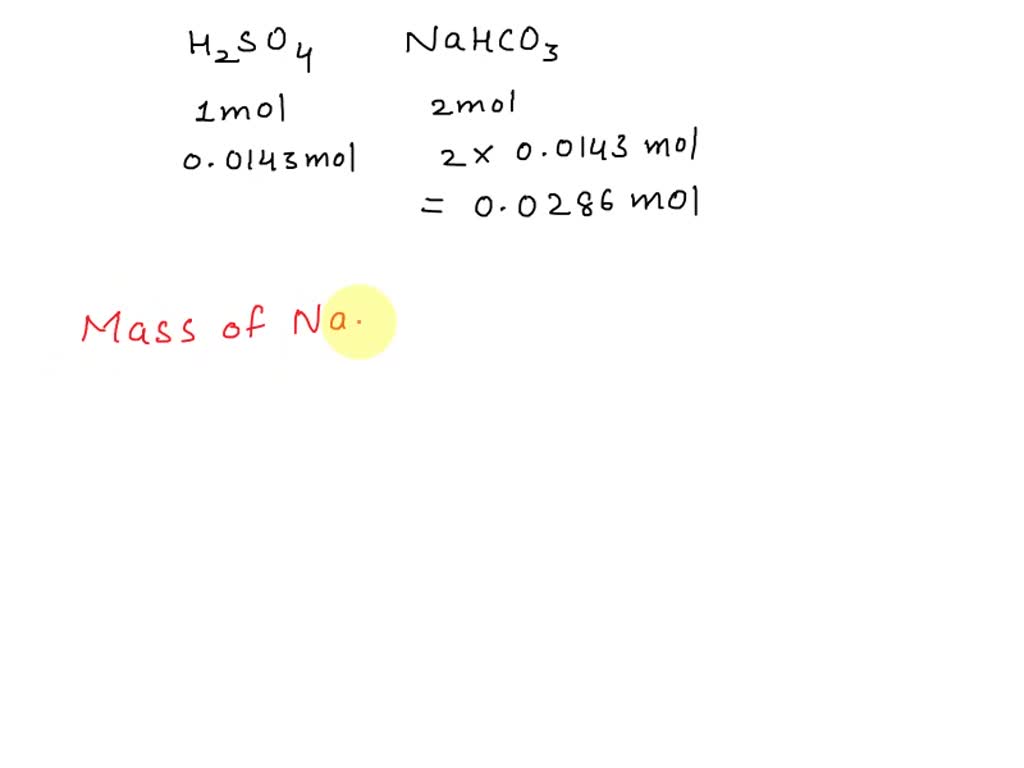 H₂SO₄ NaHCO₃
1mol 2mol
0.0143mol 2 × 0.0143 mol
= 0.0286 mol
Mass of Na.